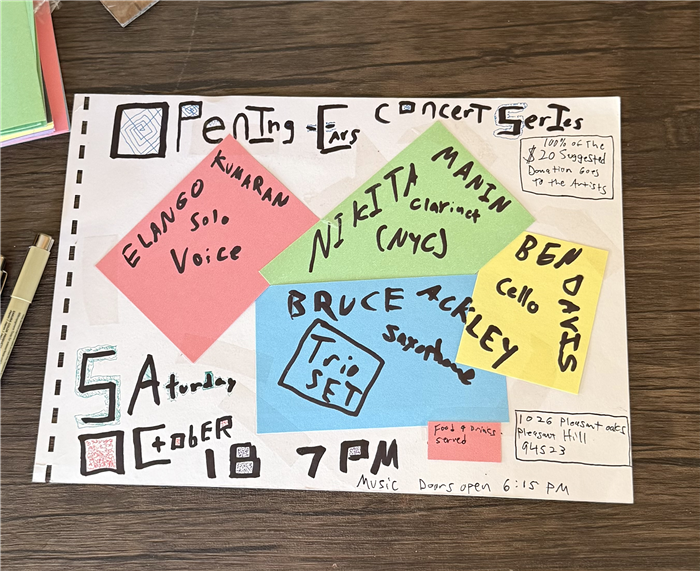 OPening Ears Concert Series
100% of The
$20 Suggested
Donation Goes
To the Artists
ELANGO KUMARAN
Solo
Voice
NIKITA MANIN
Clarinet
(NYC)
BEN DAVIS
Cello
BRUCE ACKLEY
Saxophone
Trio
SET
SAturday
OCtobER 18 7 PM
Food & Drinks
served
1026 Pleasant oaks
Pleasant Hill
94523
Music Doors open 6:15 PM